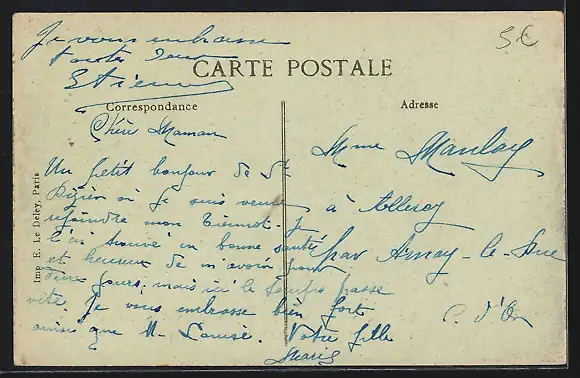 Je vous embrasse
toutes deux
Etienne
5€
CARTE POSTALE
Correspondance
Adresse
Chère Maman
Un petit bonjour de St
Dizier où je suis venue
rejoindre mon Tiennot. Je
l'ai trouvé en bonne santé
et heureux de m'avoir pour
deux jours, mais ici le temps passe
vite. Je vous embrasse bien fort
ainsi que M. Louise. Votre fille
Marie
Mme
à
par Arnay-le-Duc
C. d'Or
Imp. E. Le Deley, Paris